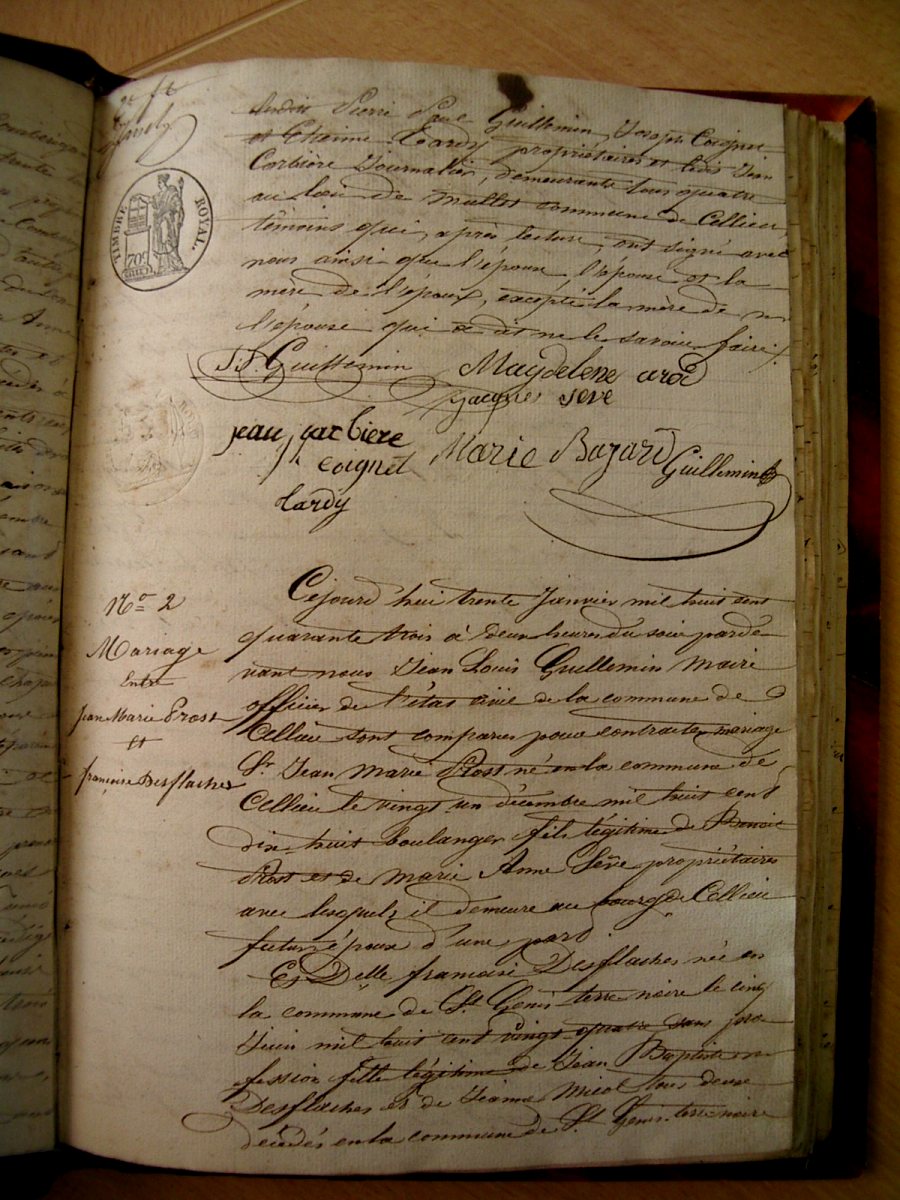 TIMBRE ROYAL
70c
Pierre Paul Guillemin, Joseph Coignet
et Etienne Tardy propriétaires et Jean
Corbière Journalier, demeurants tous quatre
au lieu de Mullet commune de Cellieu
témoins qui, après lecture, ont signé avec
nous ainsi que l'époux, l'épouse et la
mère de l'époux, excepté la mère de
l'épouse qui a dit ne le savoir faire.
Guillemin Magdelene
Jacques Seve
jean corbiere
coignet Marie Bazard Guillemin
tardy
No 2
Mariage
Entre
Jean Marie Prost
et
françoise Desflaches
Cejourd'hui trente Janvier mil huit cent
quarante trois à deux heures du soir parde
vant nous Jean Louis Guillemin Maire
officier de l'état civil de la commune de
Cellieu sont comparus pour contracter mariage
Sr Jean Marie Prost né en la commune de
Cellieu le vingt un décembre mil huit cent
dix-huit boulanger fils légitime de Benoit
Prost et de Marie Anne Sève propriétaires
avec lesquels il demeure au bourg de Cellieu
futur époux d'une part.
Et Delle françoise Desflaches née en
la commune de St Genis terre noire le cinq
Juin mil huit cent vingt quatre sans pro
fession fille légitime de Jean Baptiste
Desflaches et de Jeanne Micol tous deux
décédés en la commune de St Genis terre noire